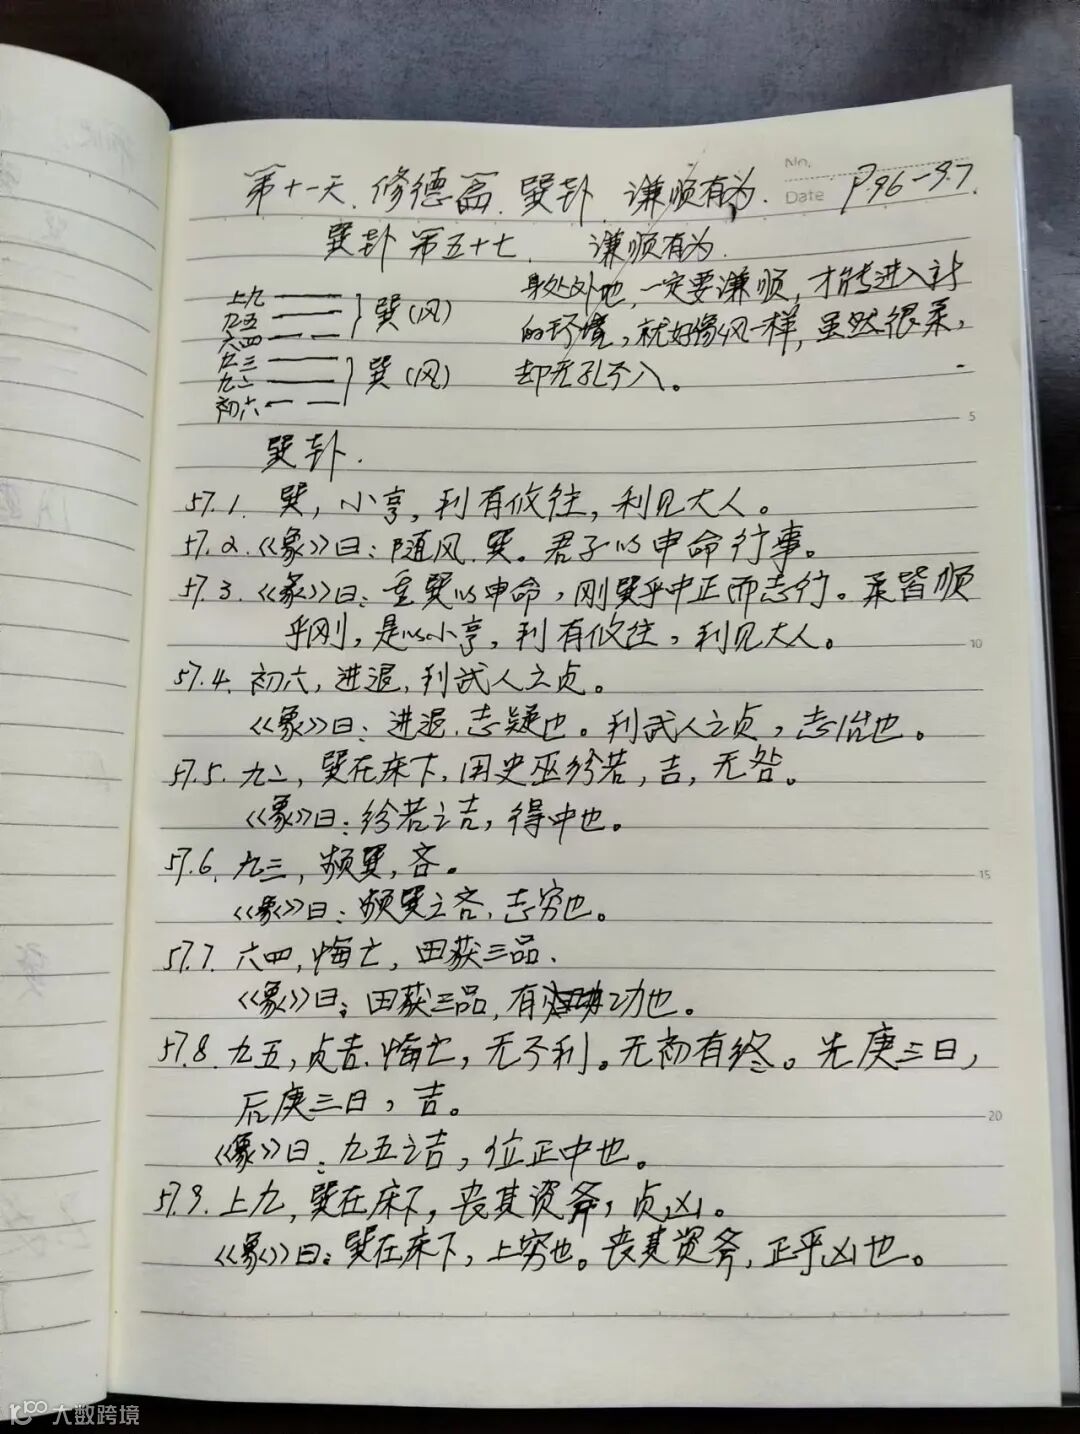 第十一天、修德篇、巽卦、谦顺有为.
No.
Date
P96-97.
巽卦第五十七 谦顺有为.
上九
九五
六四
巽(风)
九三
九二
初六
巽(风)
身处外地,一定要谦顺,才能进入新
的环境,就好像风一样,虽然很柔,
却无孔不入。
5
巽卦.
57.1. 巽,小亨,利有攸往,利见大人。
57.2.《象》曰:随风、巽。君子以申命行事。
57.3.《彖》曰:重巽以申命,刚巽乎中正而志行。柔皆顺
乎刚,是以小亨,利有攸往,利见大人。
10
57.4. 初六,进退,利武人之贞。
《象》曰:进退、志疑也。利武人之贞,志治也。
57.5. 九二,巽在床下,用史巫纷若,吉,无咎。
《象》曰:纷若之吉,得中也。
57.6. 九三,频巽,吝。
15
《象》曰:频巽之吝,志穷也。
57.7. 六四,悔亡,田获三品.
《象》曰:田获三品,有功也。
57.8. 九五,贞吉、悔亡,无不利。无初有终。先庚三日,
后庚三日,吉。
20
《象》曰:九五之吉,位正中也。
57.9. 上九,巽在床下,丧其资斧,贞凶。
《象》曰:巽在床下,上穷也。丧其资斧,正乎凶也。
大数跨境